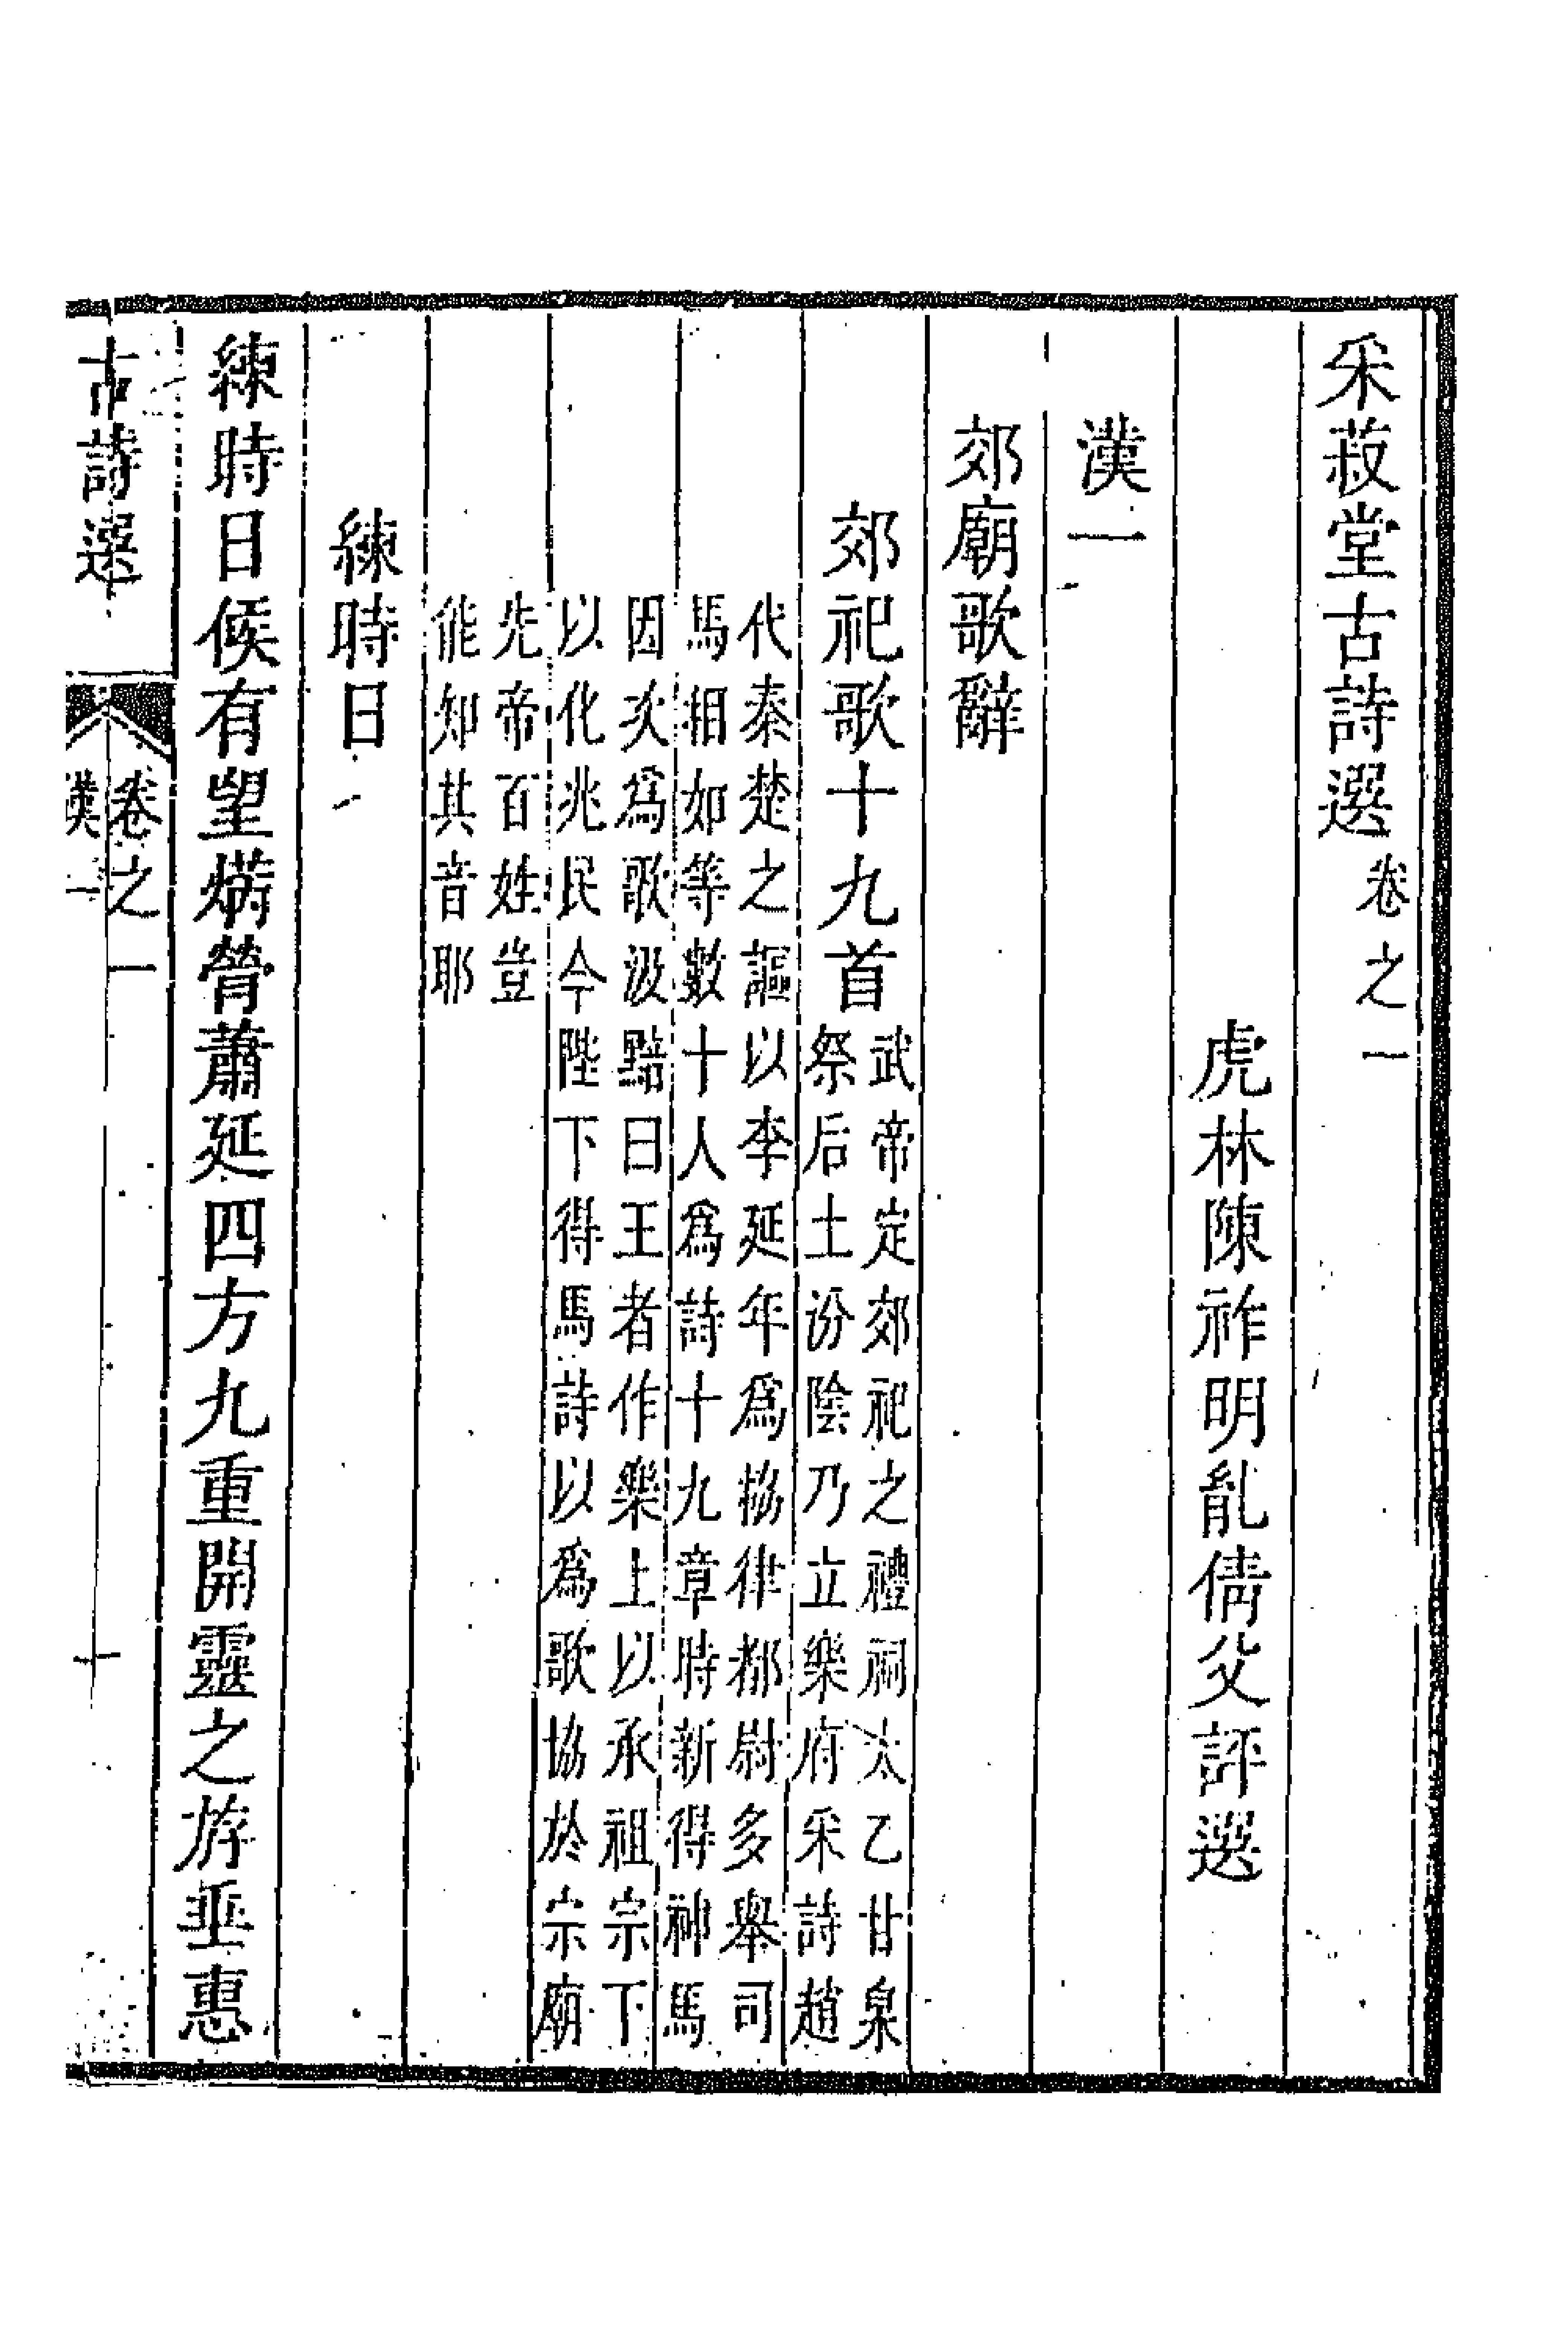 采菽堂古詩選卷之一
虎林陳祚明胤倩父評選
漢一
郊廟歌辭
郊祀歌十九首
武帝定郊祀之禮祠太乙甘泉
祭后土汾陰乃立樂府采詩趙
代秦楚之謳以李延年爲協律都尉多舉司
馬相如等數十人爲詩十九章時新得神馬
因次爲歌汲黯曰王者作樂上以承祖宗下
以化兆民今陛下得馬詩以爲歌協於宗廟
先帝百姓豈
能知其音耶
練時日
練時日候有望焫膋蕭延四方九重開靈之斿垂惠
古詩選
卷之一
漢一